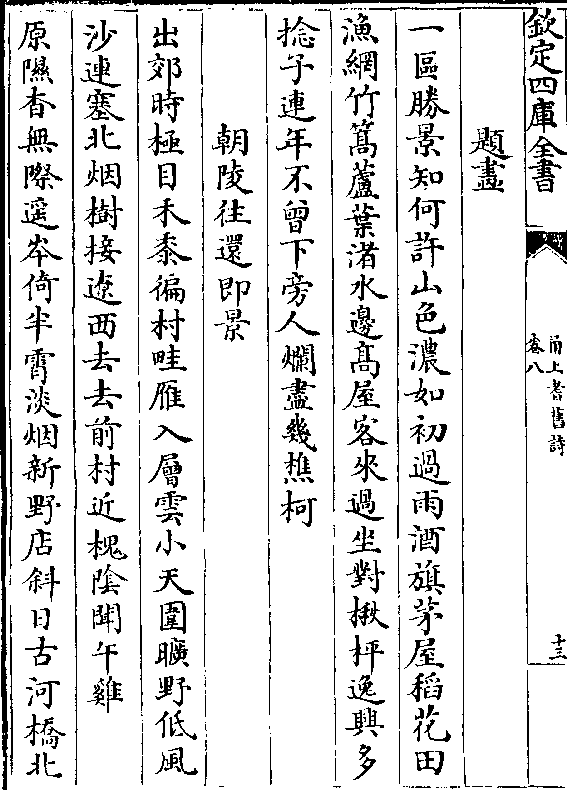 欽定四庫全書
甬上耆舊詩
卷八
十三
題畫
一區勝景知何許山色濃如初過雨酒旗茅屋稻花田
漁網竹篙蘆葉渚水邊髙屋客來過坐對楸枰逸興多
捻子連年不曾下旁人爛盡幾樵柯
朝陵往還即景
出郊時極目禾黍徧村畦雁入層雲小天圍曠野低風
沙連塞北烟樹接遼西去去前村近槐陰聞午雞
原隰杳無際遥岑倚半霄淡烟新野店斜日古河橋北